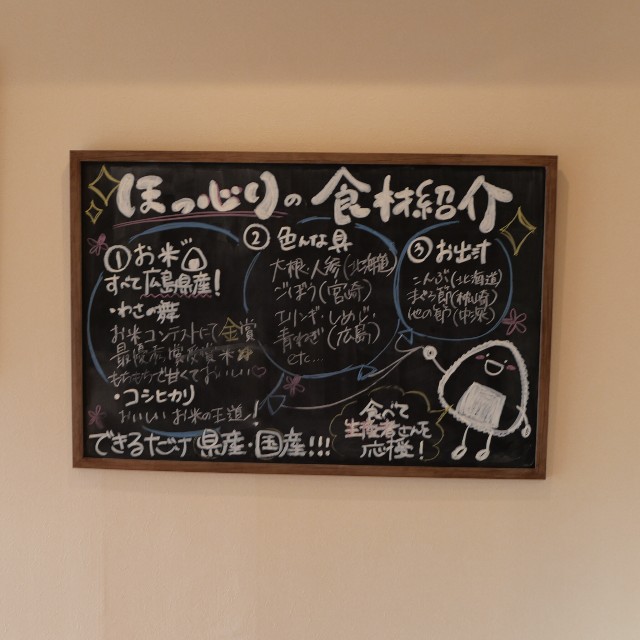 ほっじりの食材紹介
① お米
すべて広島県産!
・わさの舞
お米コンテストにて金賞
もちもちで甘くておいしい♡
・コシヒカリ
おいしいお米の王道!
② 色んな具
大根・人参(北海道)
ごぼう(宮崎)
エリンギ・しめじ
青ねぎ(広島)
etc...
③ お出汁
こんぶ(北海道)
まぐろ節
他の節
食べて
生産者さんを
応援!
できるだけ県産・国産!!!